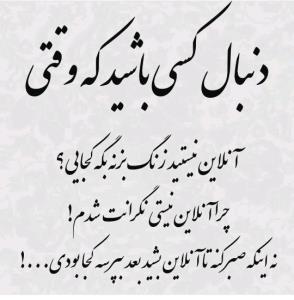 دنبال کسی باشید که وقتی
آنلاین نیستید زنگ بزنه بگه کجایی؟
چرا آنلاین نیستی نگرانت شدم!
نه اینکه صبر کنه تا آنلاین بشید بعد بپرسه کجا بودی...!